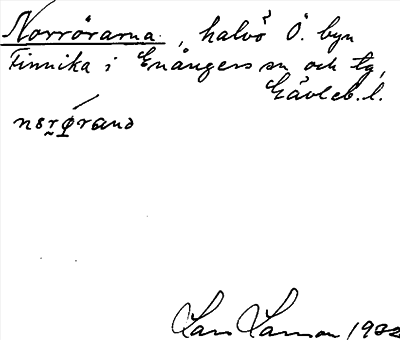 Norrörarna, halvö Ö. byn
Finnika i Enångers sn och tg,
Gävleb. l.
Lars Larsson